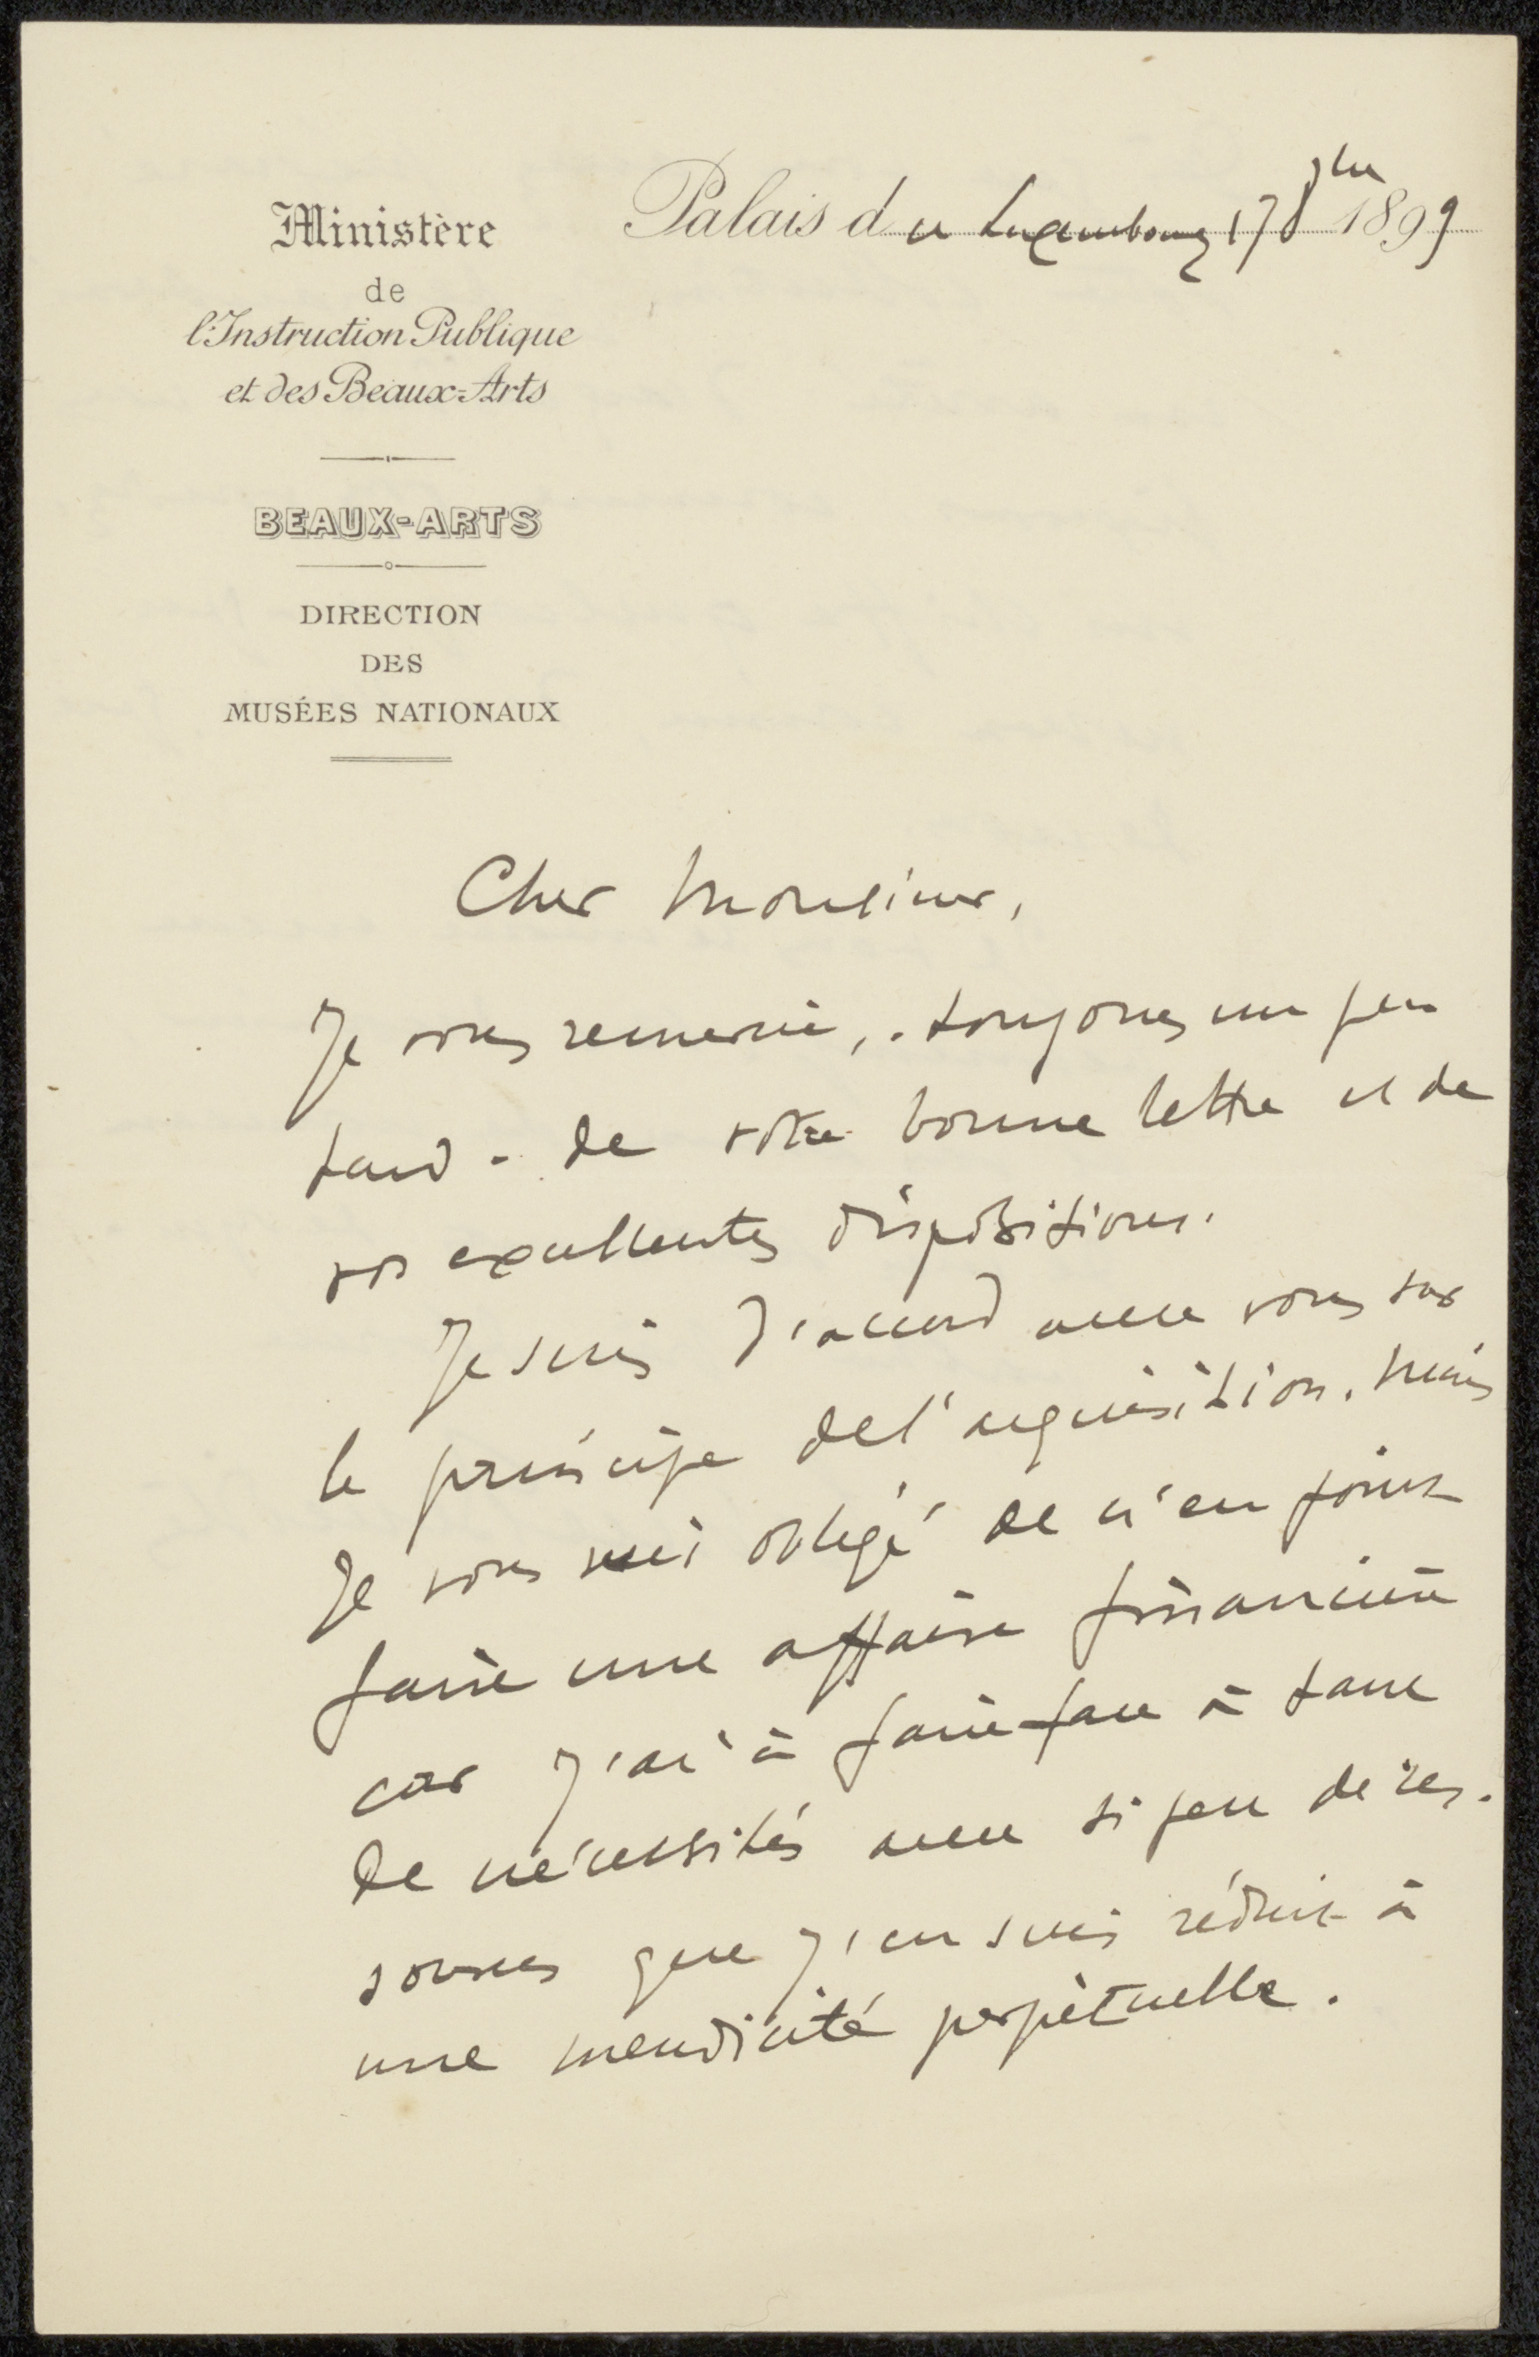 Ministère
de
l'Instruction Publique
et des Beaux-Arts
BEAUX-ARTS
DIRECTION
DES
MUSÉES NATIONAUX
Palais du Luxembourg 17 8bre 1899
Cher Monsieur,
Je vous remercie, - toujours un peu
tard - de votre bonne lettre et de
vos excellentes dispositions.
Je suis d'accord avec vous sur
le principe de l'acquisition. Mais
Je vous suis obligé de n'en point
faire une affaire financière
car j'ai à faire face à tant
de nécessités avec si peu de res-
sources que j'en suis réduit à
une mendicité perpétuelle.